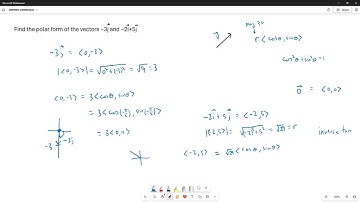 Microsoft Whiteboard
Find the polar form of the vectors −3j and −2i+5j
-3j = <0, -3>
|<0, -3>| = √0²+(-3)² = √9 = 3
<0, -3> = 3<cosθ, sinθ>
= 3<cos(-π/2), sin(-π/2)>
= 3<0, -1>
-3
-3j
v
mag ≥ 0
r<cosθ, sinθ>
cos²θ+sin²θ=1
0 = <0,0>
-2i+5j = <-2,5>
|<-2,5>| = √(-2)²+5² = √29 = r
<-2,5> = √29 <cosθ, sinθ>
inverse tan